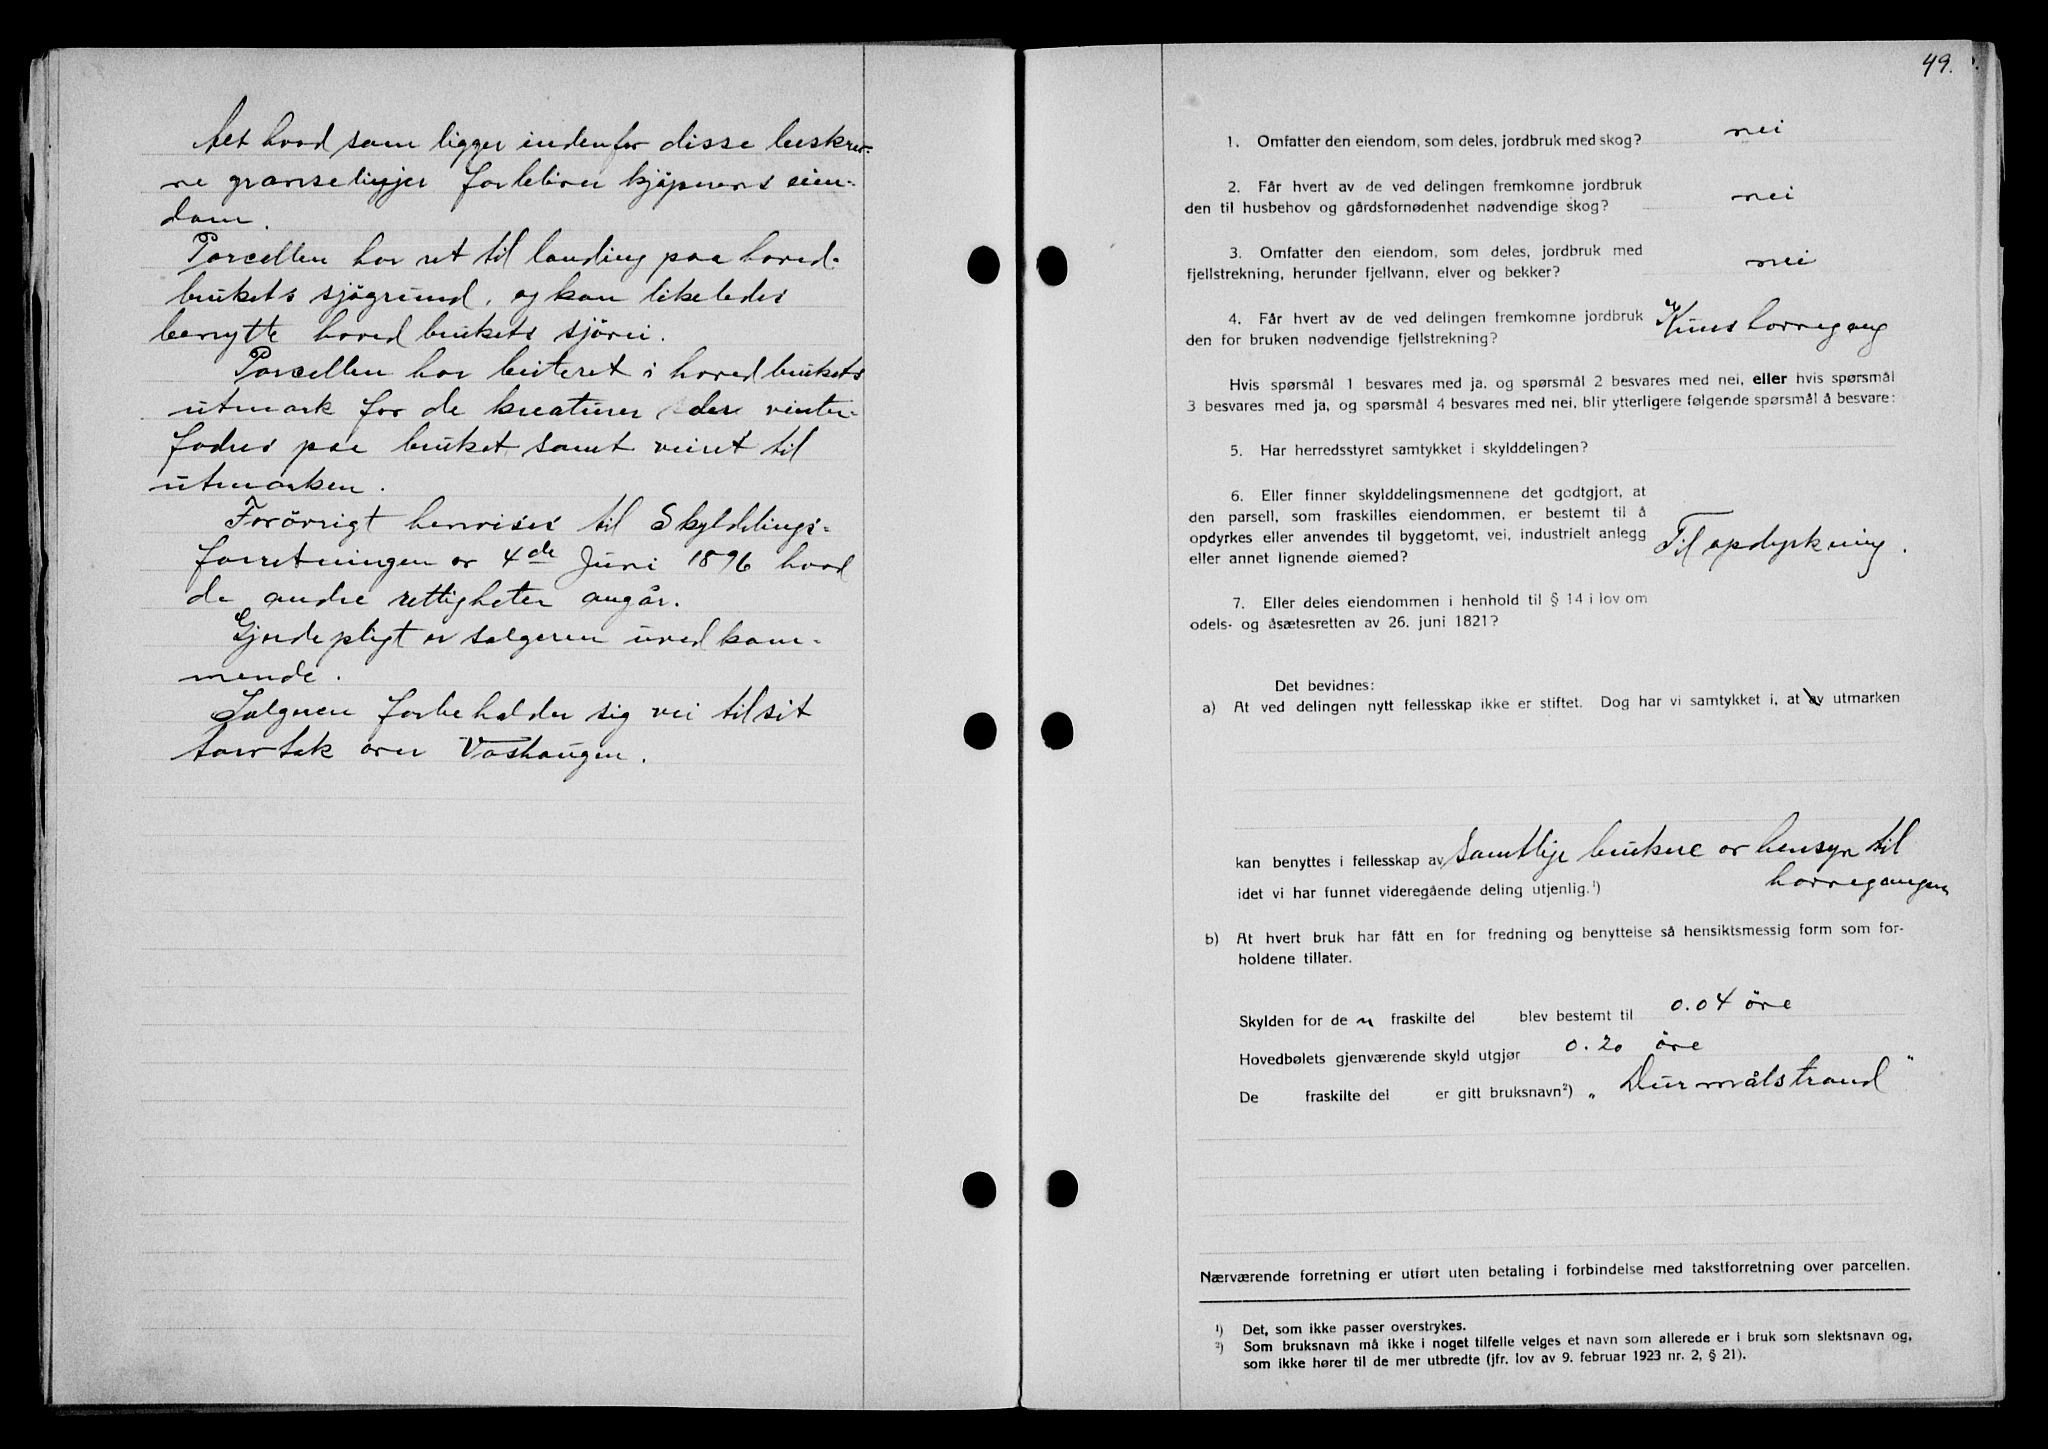 Alt hvad som ligger indenfor disse beskrev-
ne grænselinjer forbliver kjøperens eien-
dom.
Parcellen har ret til landing paa hoved-
brukets sjøgrund, og kan likeledes
benytte hovedbrukets sjövei.
Parcellen har beiteret i hovedbrukets
utmark for de kreaturer der vinter-
fødres paa bruket samt veiret til
utmarken.
Forövrigt henvises til Skylddelings-
forretningen av 4de Juni 1896 hvad
de andre rettigheter angår.
Gjerdepligt er sælgeren uvedkom-
mende.
Sælgeren forbeholder sig vei til sit
torvtak over Vashaugen.
49.
1. Omfatter den eiendom, som deles, jordbruk med skog? nei
2. Får hvert av de ved delingen fremkomne jordbruk
den til husbehov og gårdsfornødenhet nødvendige skog? nei
3. Omfatter den eiendom, som deles, jordbruk med
fjellstrekning, herunder fjellvann, elver og bekker? nei
4. Får hvert av de ved delingen fremkomne jordbruk
den for bruken nødvendige fjellstrekning? Kuns havnegang
Hvis spørsmål 1 besvares med ja, og spørsmål 2 besvares med nei, eller hvis spørsmål
3 besvares med ja, og spørsmål 4 besvares med nei, blir ytterligere følgende spørsmål å besvare:
5. Har herredsstyret samtykket i skylddelingen?
6. Eller finner skylddelingsmennene det godtgjort, at
den parsell, som fraskilles eiendommen, er bestemt til å
opdyrkes eller anvendes til byggetomt, vei, industrielt anlegg
eller annet lignende øiemed? Til opdyrkning.
7. Eller deles eiendommen i henhold til § 14 i lov om
odels- og åsætesretten av 26. juni 1821?
Det bevidnes:
a) At ved delingen nytt fellesskap ikke er stiftet. Dog har vi samtykket i, at av utmarken
kan benyttes i fellesskap av samtlige brukere av hensyn til
havnegangen
idet vi har funnet videregående deling utjenlig.¹)
b) At hvert bruk har fått en for fredning og benyttelse så hensiktsmessig form som for-
holdene tillater.
Skylden for den fraskilte del blev bestemt til 0.04 öre
Hovedbølets gjenværende skyld utgjør 0.20 öre
De fraskilte del er gitt bruksnavn²) „Durmålstrand"
Nærværende forretning er utført uten betaling i forbindelse med takstforretning over parcellen.
¹) Det, som ikke passer overstrykes.
²) Som bruksnavn må ikke i noget tilfelle velges et navn som allerede er i bruk som slektsnavn og,
som ikke hører til de mer utbredte (jfr. lov av 9. februar 1923 nr. 2, § 21).